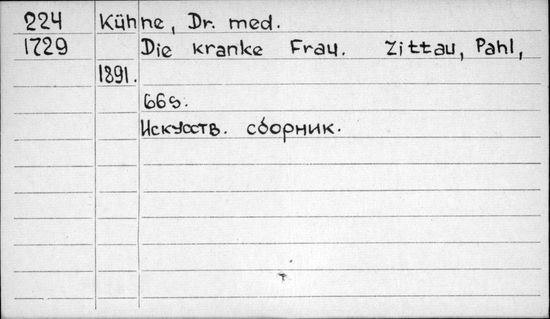 224 Kühne, Dr. med.
1729 Die kranke Frau. Zittau, Pahl,
1891.
66s.
Искусств. сборник.